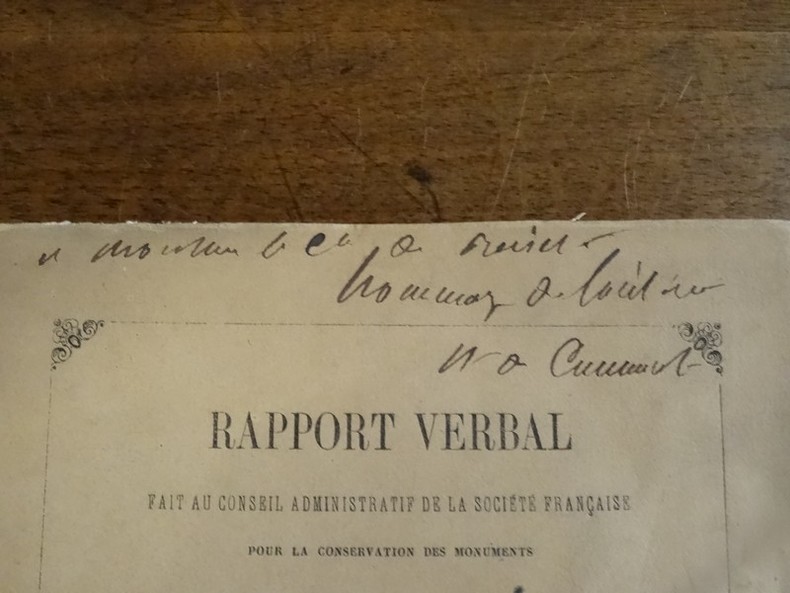 a monsieur le Cte de
hommage de
de Caumont
RAPPORT VERBAL
FAIT AU CONSEIL ADMINISTRATIF DE LA SOCIÉTÉ FRANÇAISE
POUR LA CONSERVATION DES MONUMENTS